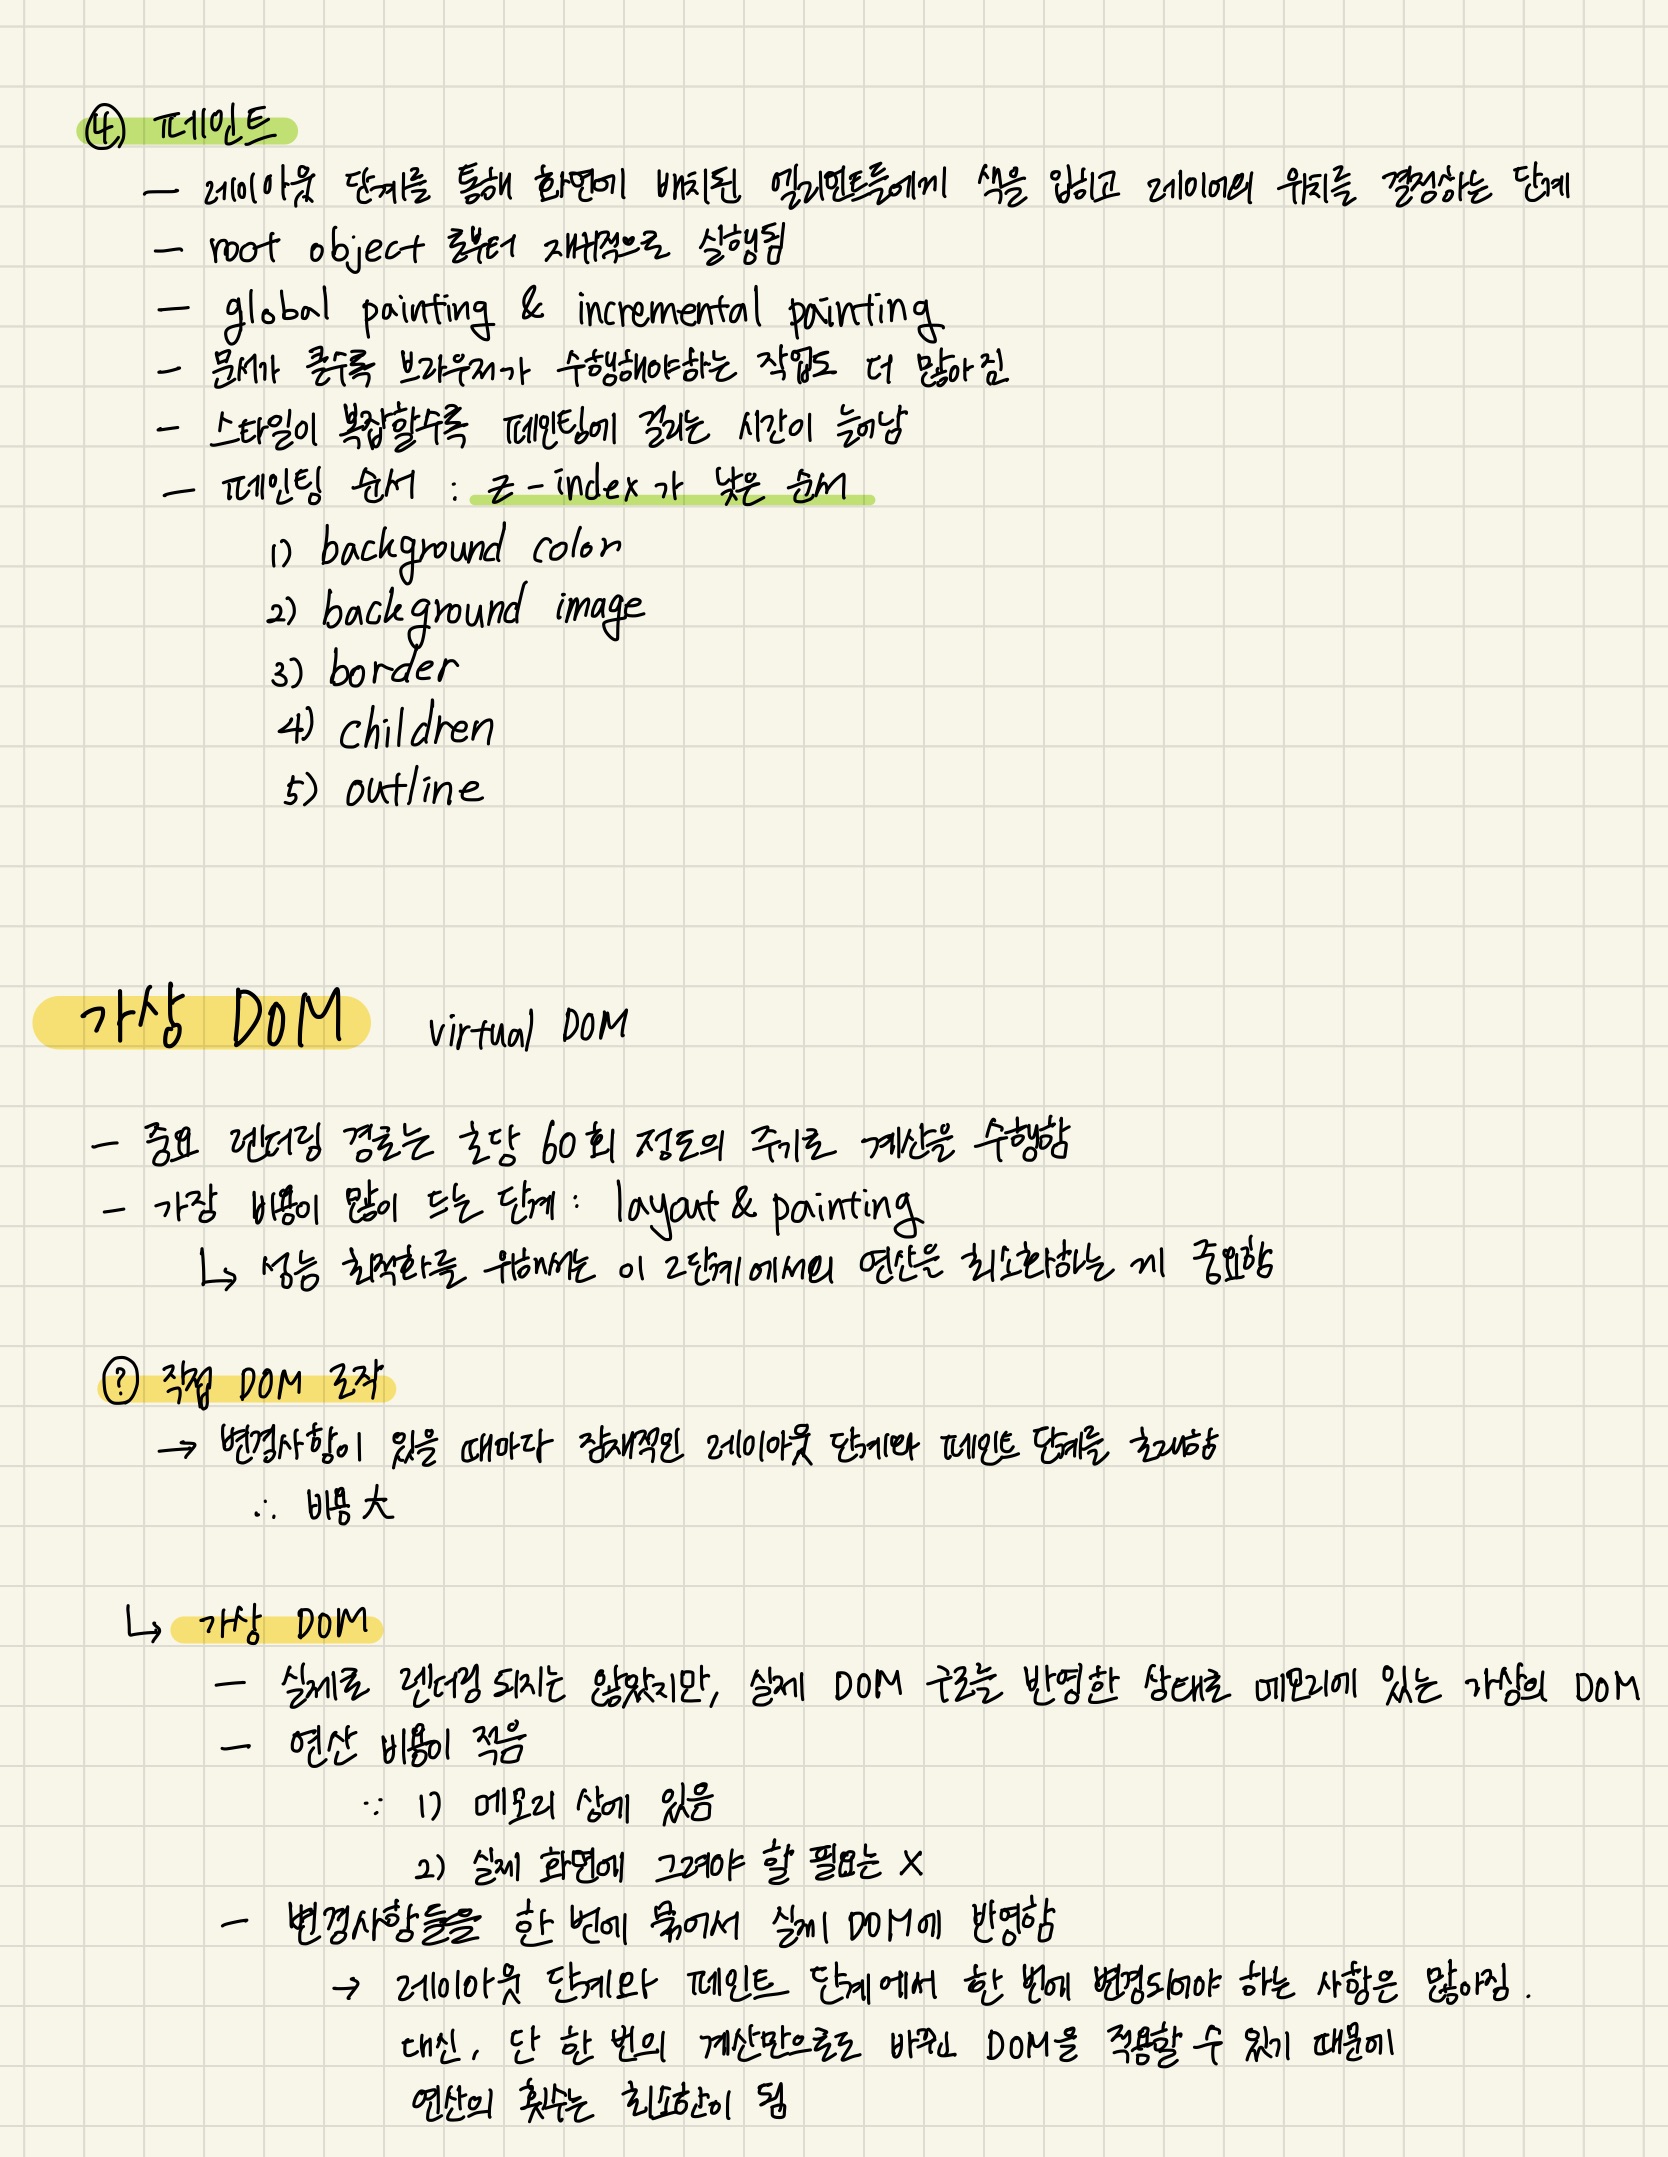 ④ 페인트
— 레이아웃 단계를 통해 화면에 배치된 엘리먼트들에게 색을 입히고 레이어의 위치를 결정하는 단계
— root object 로부터 재귀적으로 실행됨
— global painting & incremental painting
— 문서가 클수록 브라우저가 수행해야하는 작업도 더 많아짐
— 스타일이 복잡할수록 페인팅에 걸리는 시간이 늘어남
— 페인팅 순서 : z-index가 낮은 순서
1) background color
2) background image
3) border
4) children
5) outline
가상 DOM virtual DOM
— 중요 렌더링 경로는 초당 60회 정도의 주기로 계산을 수행함
— 가장 비용이 많이 드는 단계 : layout & painting
↳ 성능 최적화를 위해서는 이 2단계에서의 연산은 최소화하는 게 중요함
? 직접 DOM 조작
→ 변경사항이 있을 때마다 잠재적인 레이아웃 단계와 페인트 단계를 초래함
∴ 비용 大
↳ 가상 DOM
— 실제로 렌더링 되지는 않았지만, 실제 DOM 구조를 반영한 상태로 메모리에 있는 가상의 DOM
— 연산 비용이 적음
∵ 1) 메모리 상에 있음
2) 실제 화면에 그려야 할 필요는 X
— 변경사항들을 한 번에 묶어서 실제 DOM에 반영함
→ 레이아웃 단계와 페인트 단계에서 한 번에 변경되어야 하는 사항은 많아짐.
대신, 단 한 번의 계산만으로도 바뀐 DOM을 적용할 수 있기 때문에
연산의 횟수는 최소한이 됨